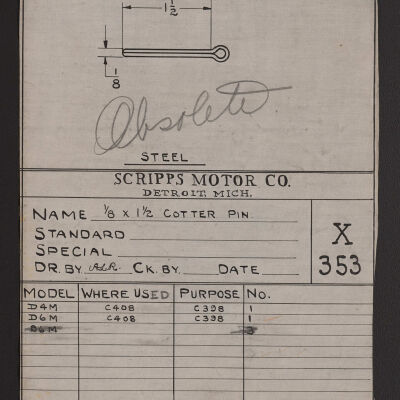 1 1/2
1/8
Obsolete
STEEL
SCRIPPS MOTOR CO.
DETROIT, MICH.
NAME 1/8 X 1 1/2 COTTER PIN
STANDARD
SPECIAL
DR. BY CK. BY DATE
X
353
MODEL WHERE USED PURPOSE NO.
D4M C408 C398 1
D6M C408 C398 1